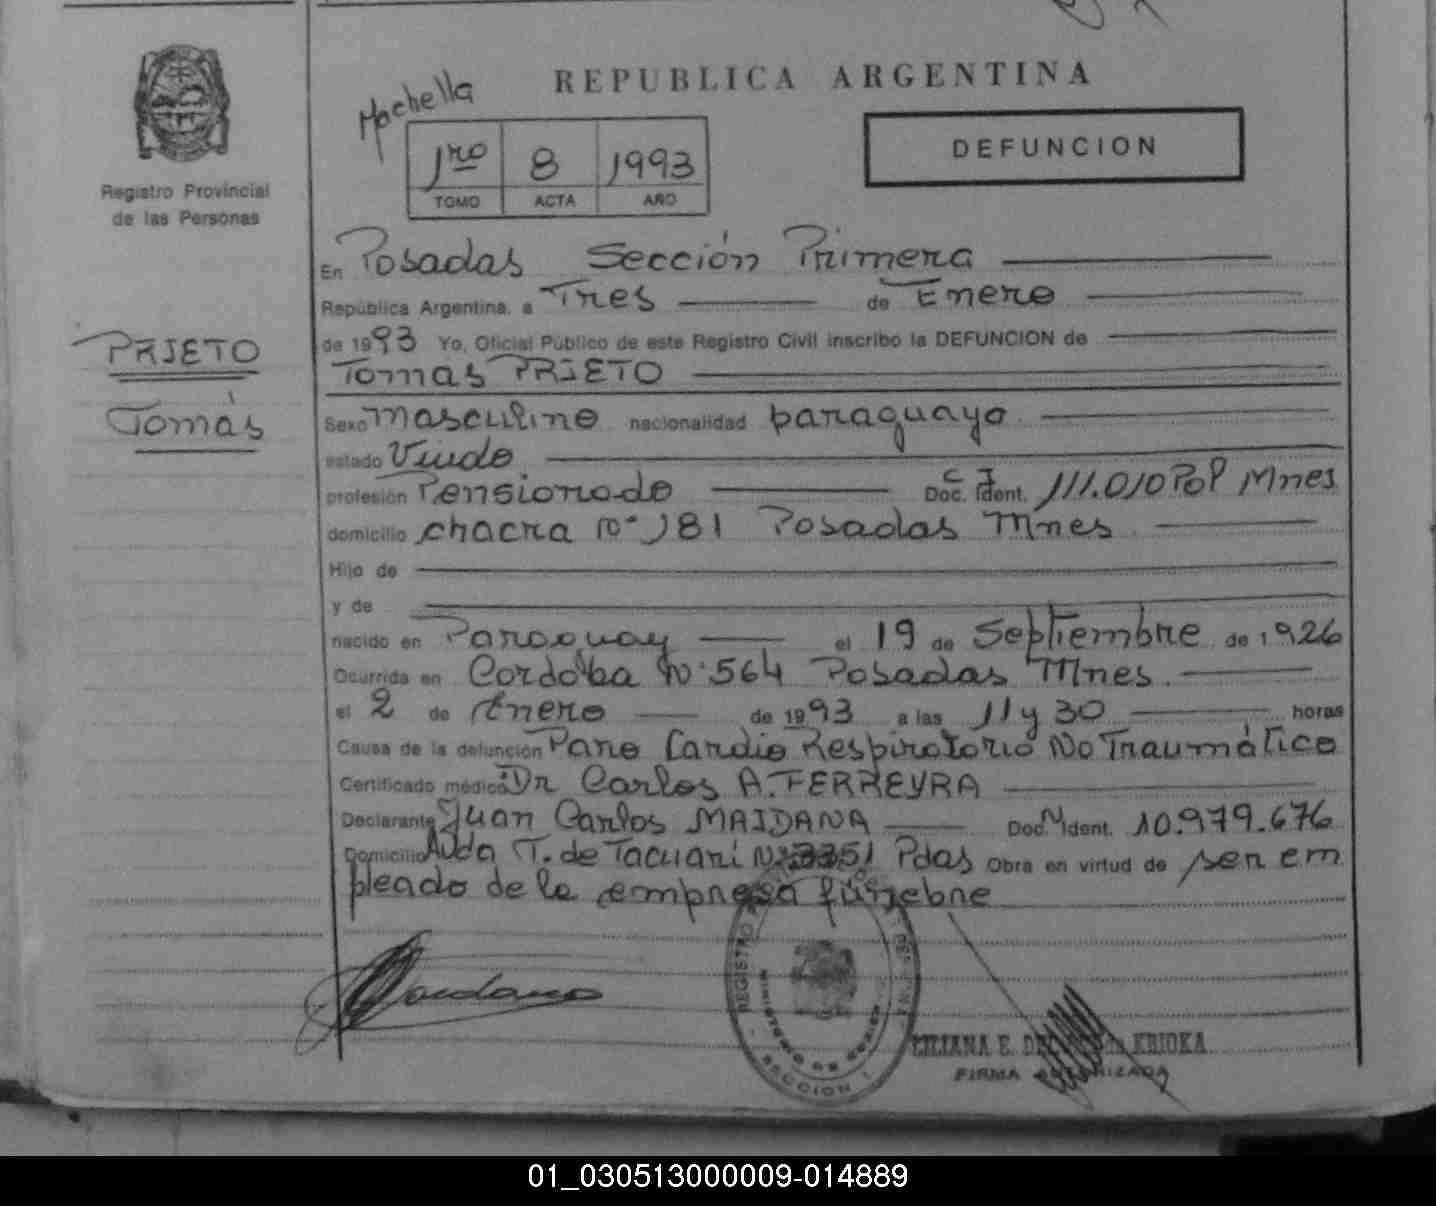 REPUBLICA ARGENTINA
Registro Provincial
de las Personas
1ro 8 1993
TOMO ACTA AÑO
DEFUNCION
PRIETO
Tomás
En Posadas Sección Primera
República Argentina, a Tres de Enero
de 1993 Yo, Oficial Público de este Registro Civil inscribo la DEFUNCION de
Tomás PRIETO
Sexo masculino nacionalidad paraguayo
estado Viudo
profesión Pensionado Doc. Ident. C I 111.010 Pol Mnes
domicilio chacra Nº 181 Posadas Mnes
Hijo de
y de
nacido en Paraguay el 19 de Septiembre de 1926
Ocurrida en Cordoba Nº 564 Posadas Mnes.
el 2 de Enero de 1993 a las 11 y 30 horas
Causa de la defunción Paro Cardio Respiratorio No Traumático
Certificado médico Dr Carlos A. FERREYRA
Declarante Juan Carlos MAIDANA Doc. N Ident. 10.979.676
Domicilio Avda T. de Tacuarí Pdas Obra en virtud de ser em
pleado de la empresa fúnebre
REGISTRO
MINISTERIO DE
SECCION 1
LILIANA E. KRIOKA
FIRMA AUTORIZADA
01_030513000009-014889